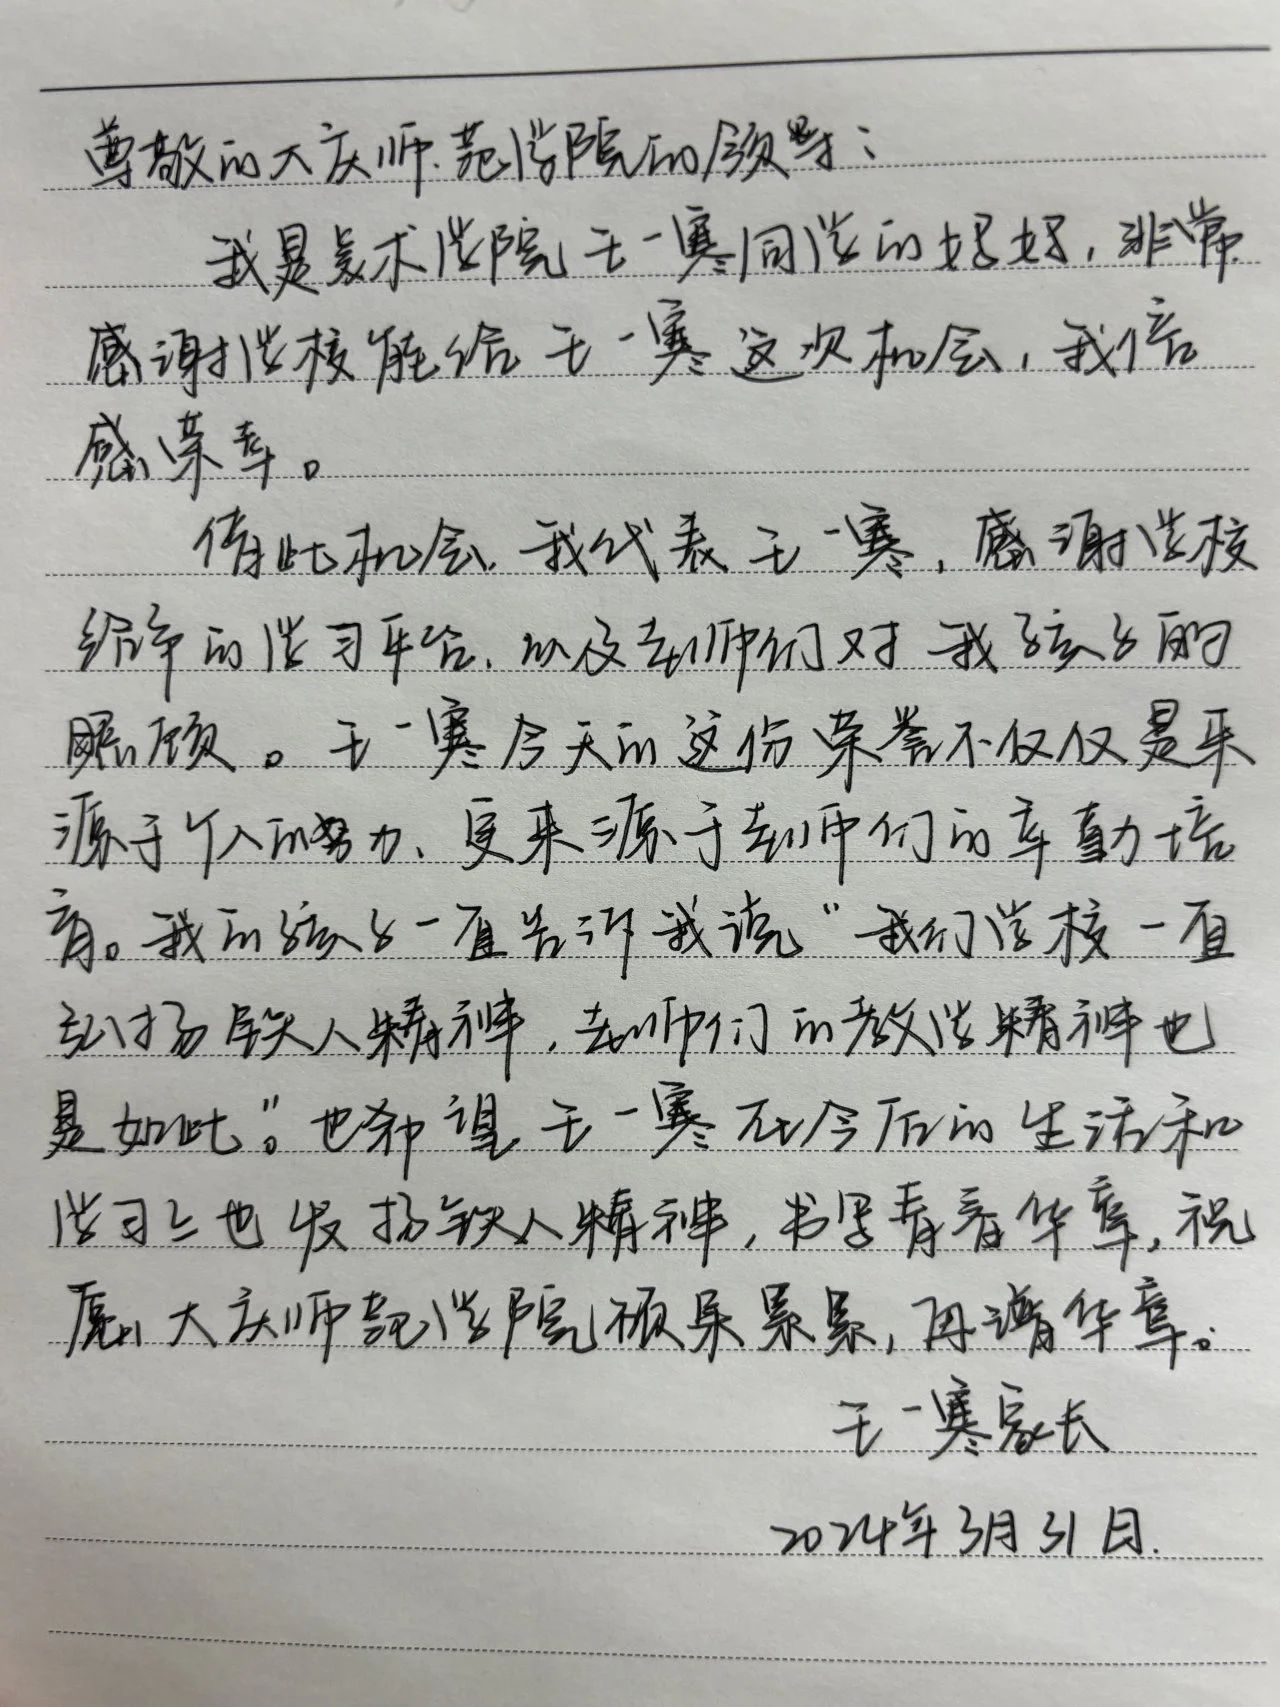 尊敬的大庆师范学院的领导:
我是美术学院王一寒同学的妈妈,非常
感谢学校能给王一寒这次机会,我倍
感荣幸。
借此机会,我代表王一寒,感谢学校
给予的学习平台,以及老师们对我孩子的
照顾。王一寒今天的这份荣誉不仅仅是来
源于个人的努力、更来源于老师们的辛勤培
育。我的孩子一直告诉我说“我们学校一直
弘扬铁人精神,老师们的教学精神也
是如此”。也希望王一寒在今后的生活和
学习上也发扬铁人精神,书写青春华章,祝
愿大庆师范学院硕果累累,再谱华章。
王一寒家长
2024年3月31日.